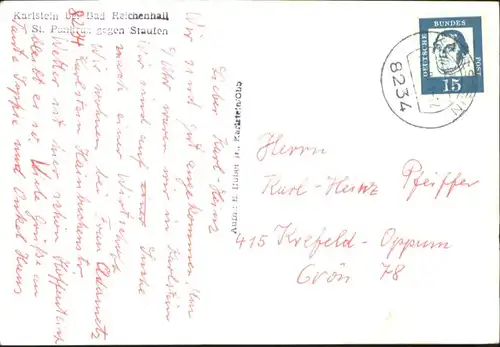 Karlstein bei Bad Reichenhall
St. Pankraz gegen Staufen
Lieber Karl-Heinz
Wir sind gut angekommen. Um
9 Uhr waren wir in Karlstein
wir sind auf Suche
nach einer Wirtschaft
Wir wohnen bei Frau Adametz
8234 Karlstein Hainbuchenstr
Wetter ist hier schön Hoffentlich
bleibt es so Viele Grüße an
Tante Sophie und Onkel Hans
Aufn.: E. Huber jr., Karlstein/Obb
DEUTSCHE BUNDES POST
15
8234
Herrn
Karl-Heinz Pfeiffer
415 Krefeld-Oppum
Grön 78